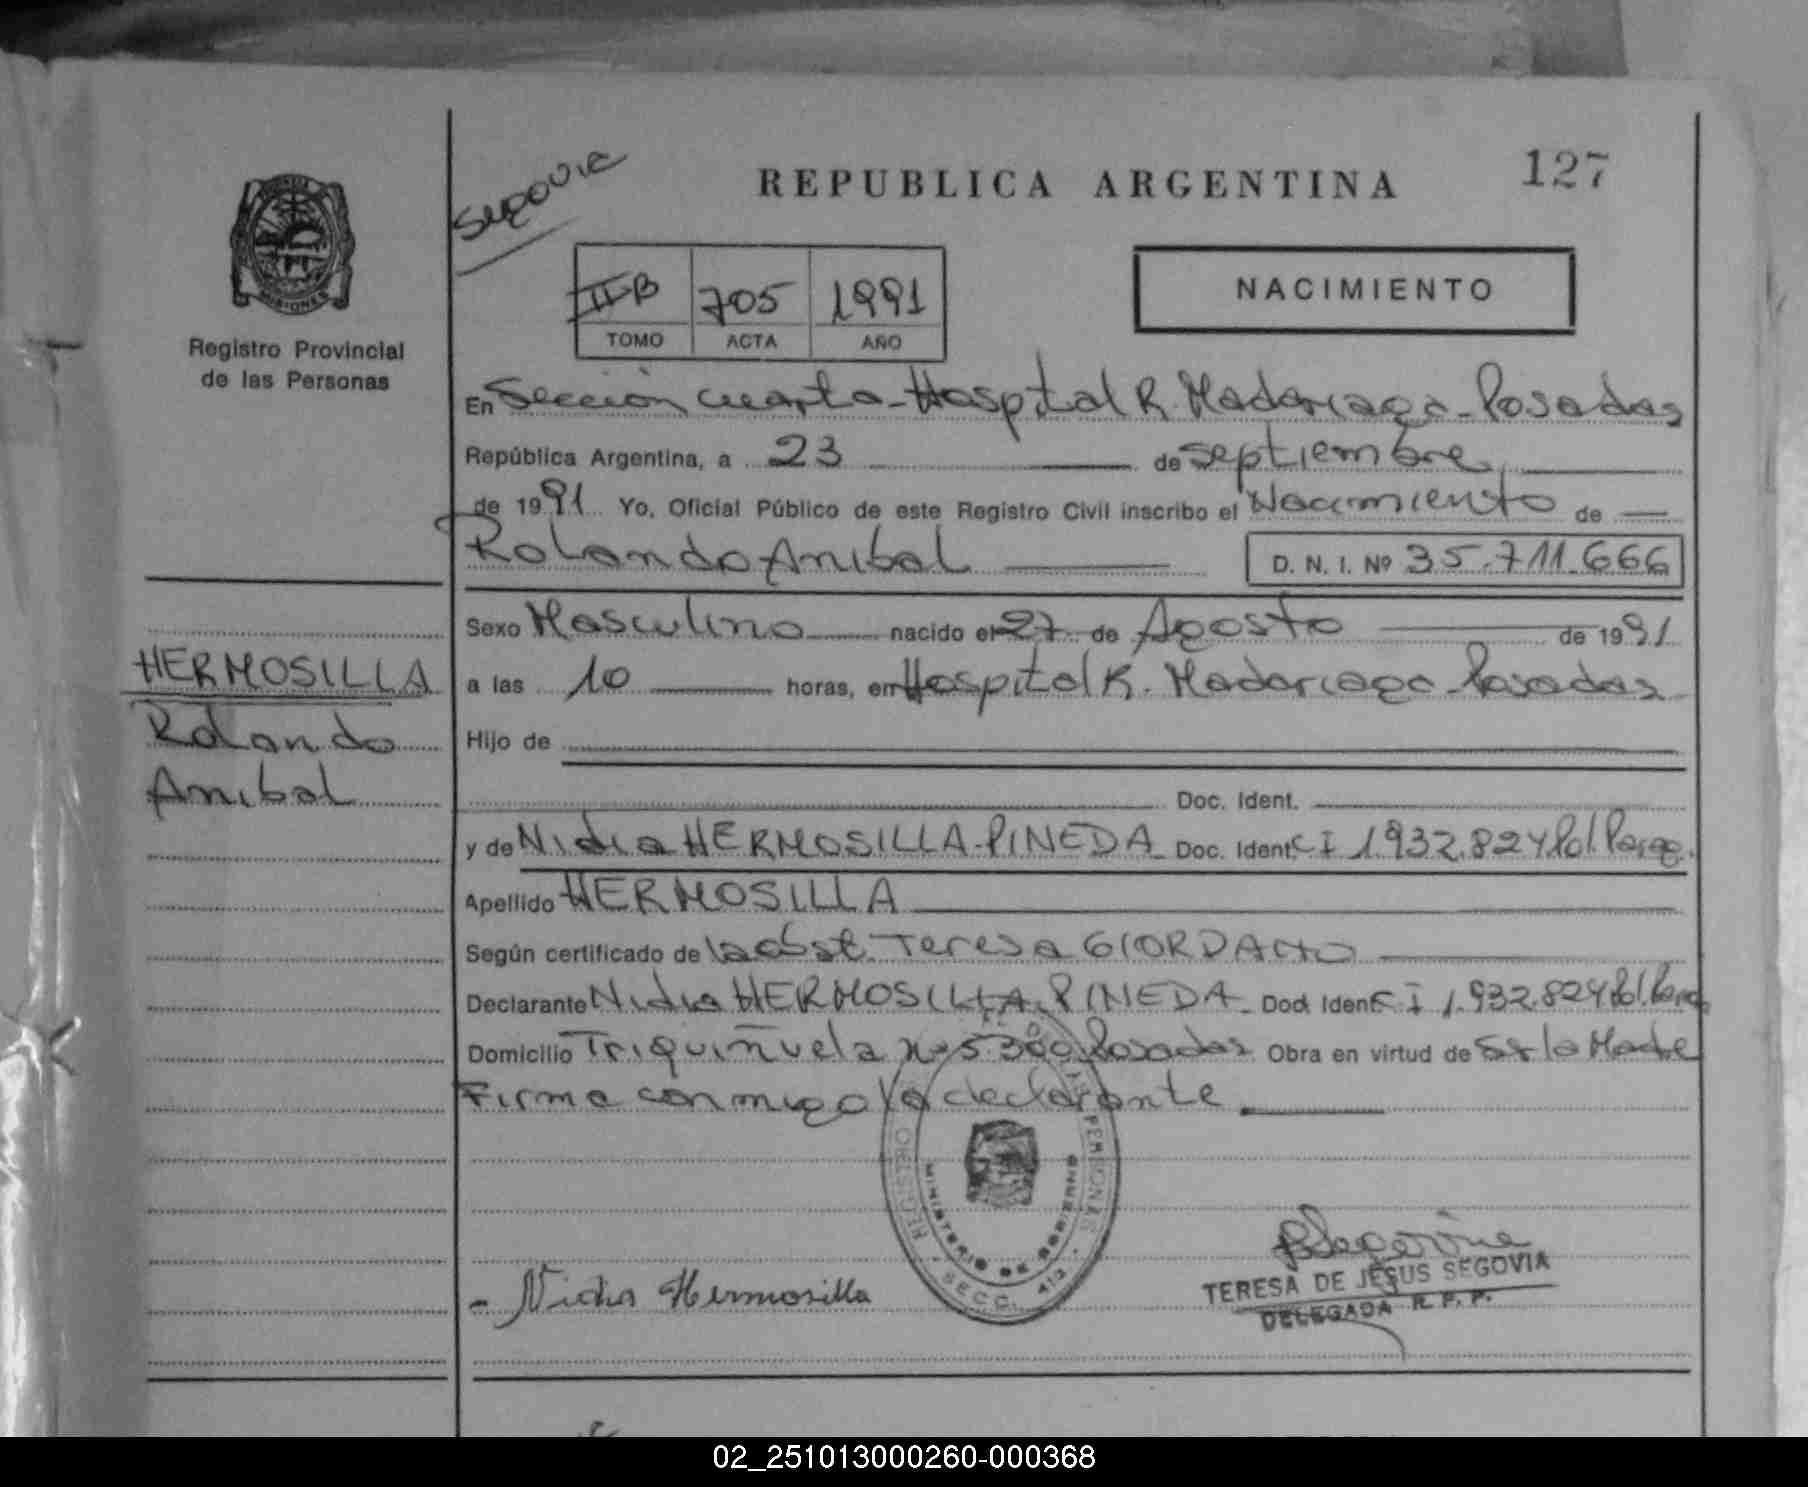 127
REPUBLICA ARGENTINA
Segovia
IIB 705 1991
TOMO ACTA AÑO
NACIMIENTO
MISIONES
Registro Provincial
de las Personas
En Sección cuarta - Hospital R. Madariaga - Posadas
República Argentina, a 23 de septiembre
de 1991 Yo, Oficial Público de este Registro Civil inscribo el Nacimiento de
Rolando Anibal D. N. I. Nº 35.711.666
Sexo Masculino nacido el 27 de Agosto de 1991
HERMOSILLA
Rolando
Anibal
a las 10 horas, en Hospital R. Madariaga - Posadas
Hijo de
Doc. Ident.
y de Nidia HERMOSILLA - PINEDA - Doc. Ident. C I 1.932.824 Pol. Parag.
Apellido HERMOSILLA
Según certificado de la obst. Teresa GIORDANO
Declarante Nidia HERMOSILLA - PINEDA - Doc. Ident. C I 1.932.824 Pol. Parag
Domicilio Triquiñuela Nº 5.300 Posadas Obra en virtud de ser la Madre
Firma conmigo la declarante
REGISTRO DE LAS PERSONAS
MINISTERIO DE GOBIERNO
SECC. 413
- Nidia Hermosilla
TSegovia
TERESA DE JESUS SEGOVIA
DELEGADA R. P. P.
02_251013000260-000368